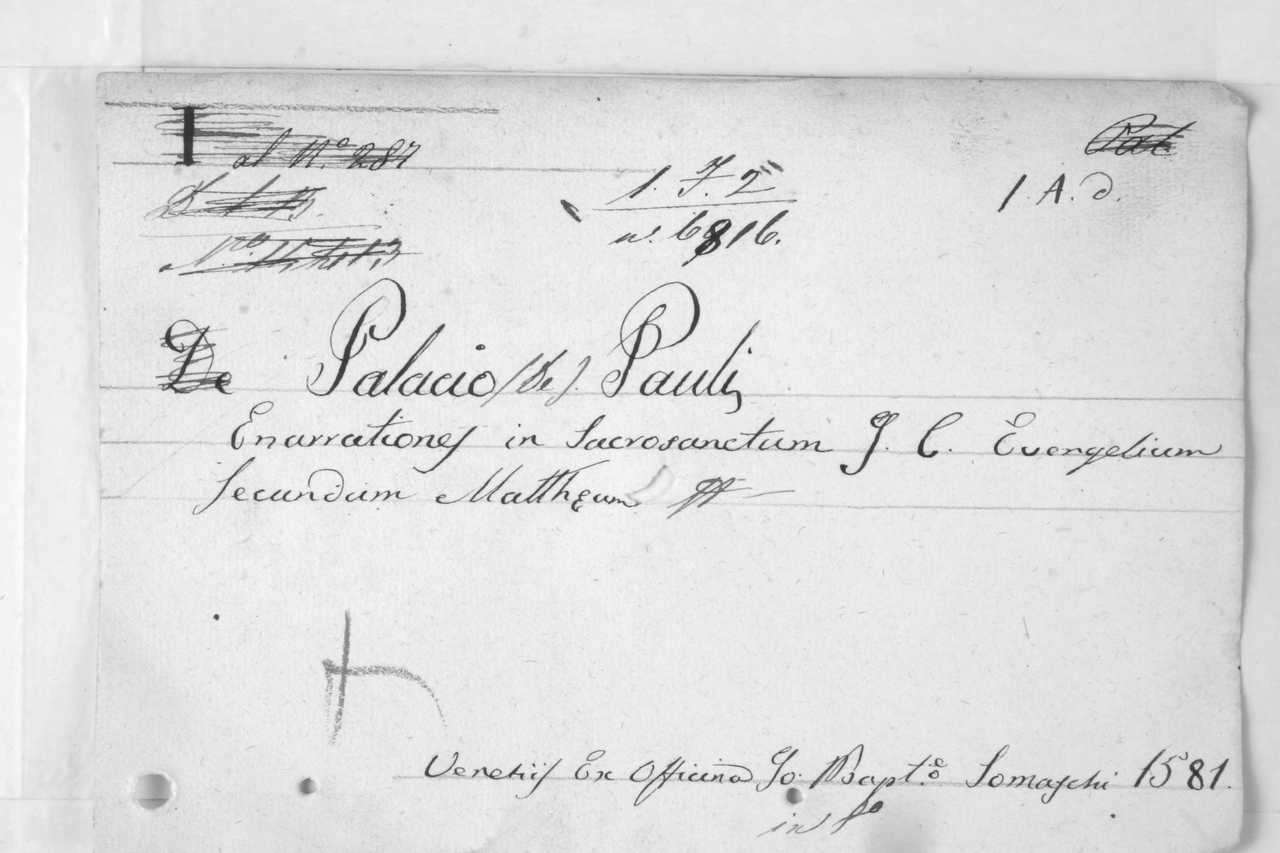 al N.º 287
1. F. 2
1. A. d.
n. 6816.
De Palacio (de). Pauli
Enarrationes in Sacrosanctum J. C. Evengelium
secundum Mattheum
Venetiis Ex Officina Jo: Bapt.e Somaschi 1581.
in fº